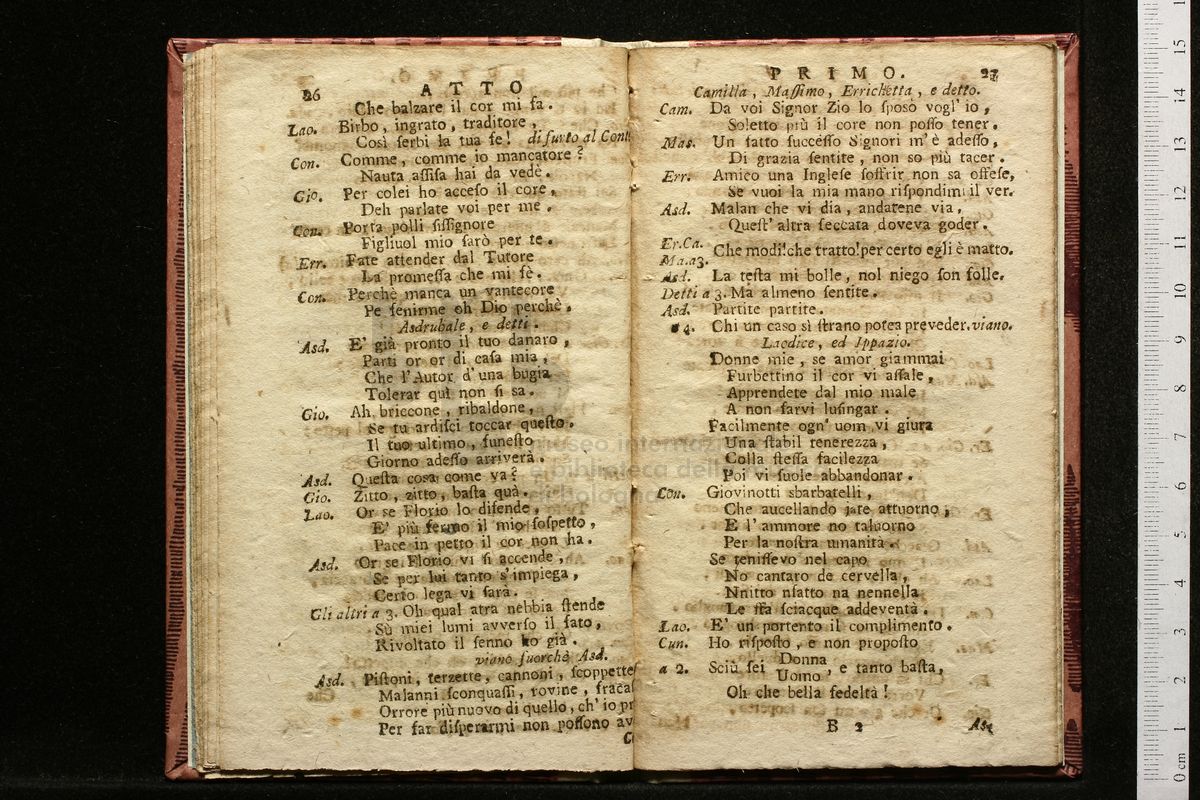 26
ATTO
Che balzare il cor mi fa.
Lao. Birbo, ingrato, traditore,
Così ſerbi la tua fe! di furto al Cont
Con. Comme, comme io mancatore?
Nauta aſſiſa hai da vedè.
Gio. Per colei ho acceſo il core,
Deh parlate voi per me.
Con. Porta polli ſiſſignore
Figliuol mio farò per te.
Err. Fate attender dal Tutore
La promeſſa che mi fè.
Con. Perchè manca un vantecore
Pe ſenirme oh Dio perchè.
Asdrubale, e detti.
Asd. E' già pronto il tuo danaro,
Parti or or di caſa mia,
Che l'Autor d'una bugia
Tolerar quì non ſi sa.
Gio. Ah briccone, ribaldone,
Se tu ardiſci toccar queſto.
Il tuo ultimo, funeſto
Giorno adeſſo arriverà.
Asd. Queſta cosa come va?
Gio. Zitto, zitto, baſta quà.
Lao. Or se Florio lo difende,
E' più fermo il mio ſoſpetto,
Pace in petto il cor non ha.
Asd. Or se Florio vi ſi accende,
Se per lui tanto s'impiega,
Certo lega vi farà.
Gli altri a 3. Oh qual atra nebbia ſtende
Sù miei lumi avverſo il fato,
Rivoltato il ſenno ho già.
viano fuorchè Asd.
Asd. Piſtoni, terzette, cannoni, ſcoppette
Malanni ſconquaſſi, rovine, fracaſ
Orrore più nuovo di quello, ch'io pr
Per far diſperarmi non poſſono av
C
PRIMO.
27
Camilla, Maſſimo, Errichetta, e detto.
Cam. Da voi Signor Zio lo ſposò vogl'io,
Soletto più il core non poſſo tener.
Mas. Un fatto ſucceſſo Signori m'è adeſſo,
Di grazia ſentite, non so più tacer.
Err. Amico una Ingleſe ſoffrir non sa offeſe,
Se vuoi la mia mano riſpondimi il ver.
Asd. Malan che vi dia, andatene via,
Queſt'altra ſeccata doveva goder.
Er.Ca.
Ma.a3. Che modi! che tratto! per certo egli è matto.
Asd. La teſta mi bolle, nol niego ſon folle.
Detti a 3. Ma almeno ſentite.
Asd. Partite partite.
a 4. Chi un caso sì ſtrano potea preveder. viano.
Laodice, ed Ippazio.
Donne mie, se amor giammai
Furbettino il cor vi aſſale,
Apprendete dal mio male
A non farvi luſingar.
Facilmente ogn'uom vi giura
Una ſtabil tenerezza,
Colla ſteſſa facilezza
Poi vi ſuole abbandonar.
Con. Giovinotti sbarbatelli,
Che aucellando jate attuorno,
E l'ammore no taluorno
Per la noſtra umanità.
Se teniſſevo nel capo
No cantaro de cervella,
Nnitto nfatto na nennella
Le ſta ſciacque addeventà.
Lao. E' un portento il complimento.
Cun. Ho riſpoſto, e non propoſto
a 2. Sciù ſei Donna
Uomo, e tanto baſta,
Oh che bella fedeltà!
B 2
As